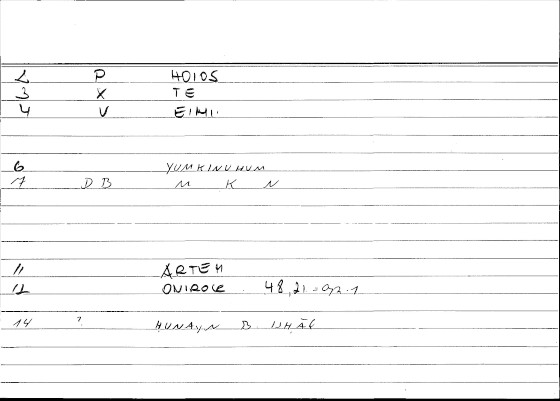 2 P HOIOS
3 X TE
4 V EIMI.
6 YUMKINUHUM
7 DB M K N
11 ARTEM
12 ONIROCR. 48,21 = 92.1
14 ? HUNAYN B. ISHĀQ